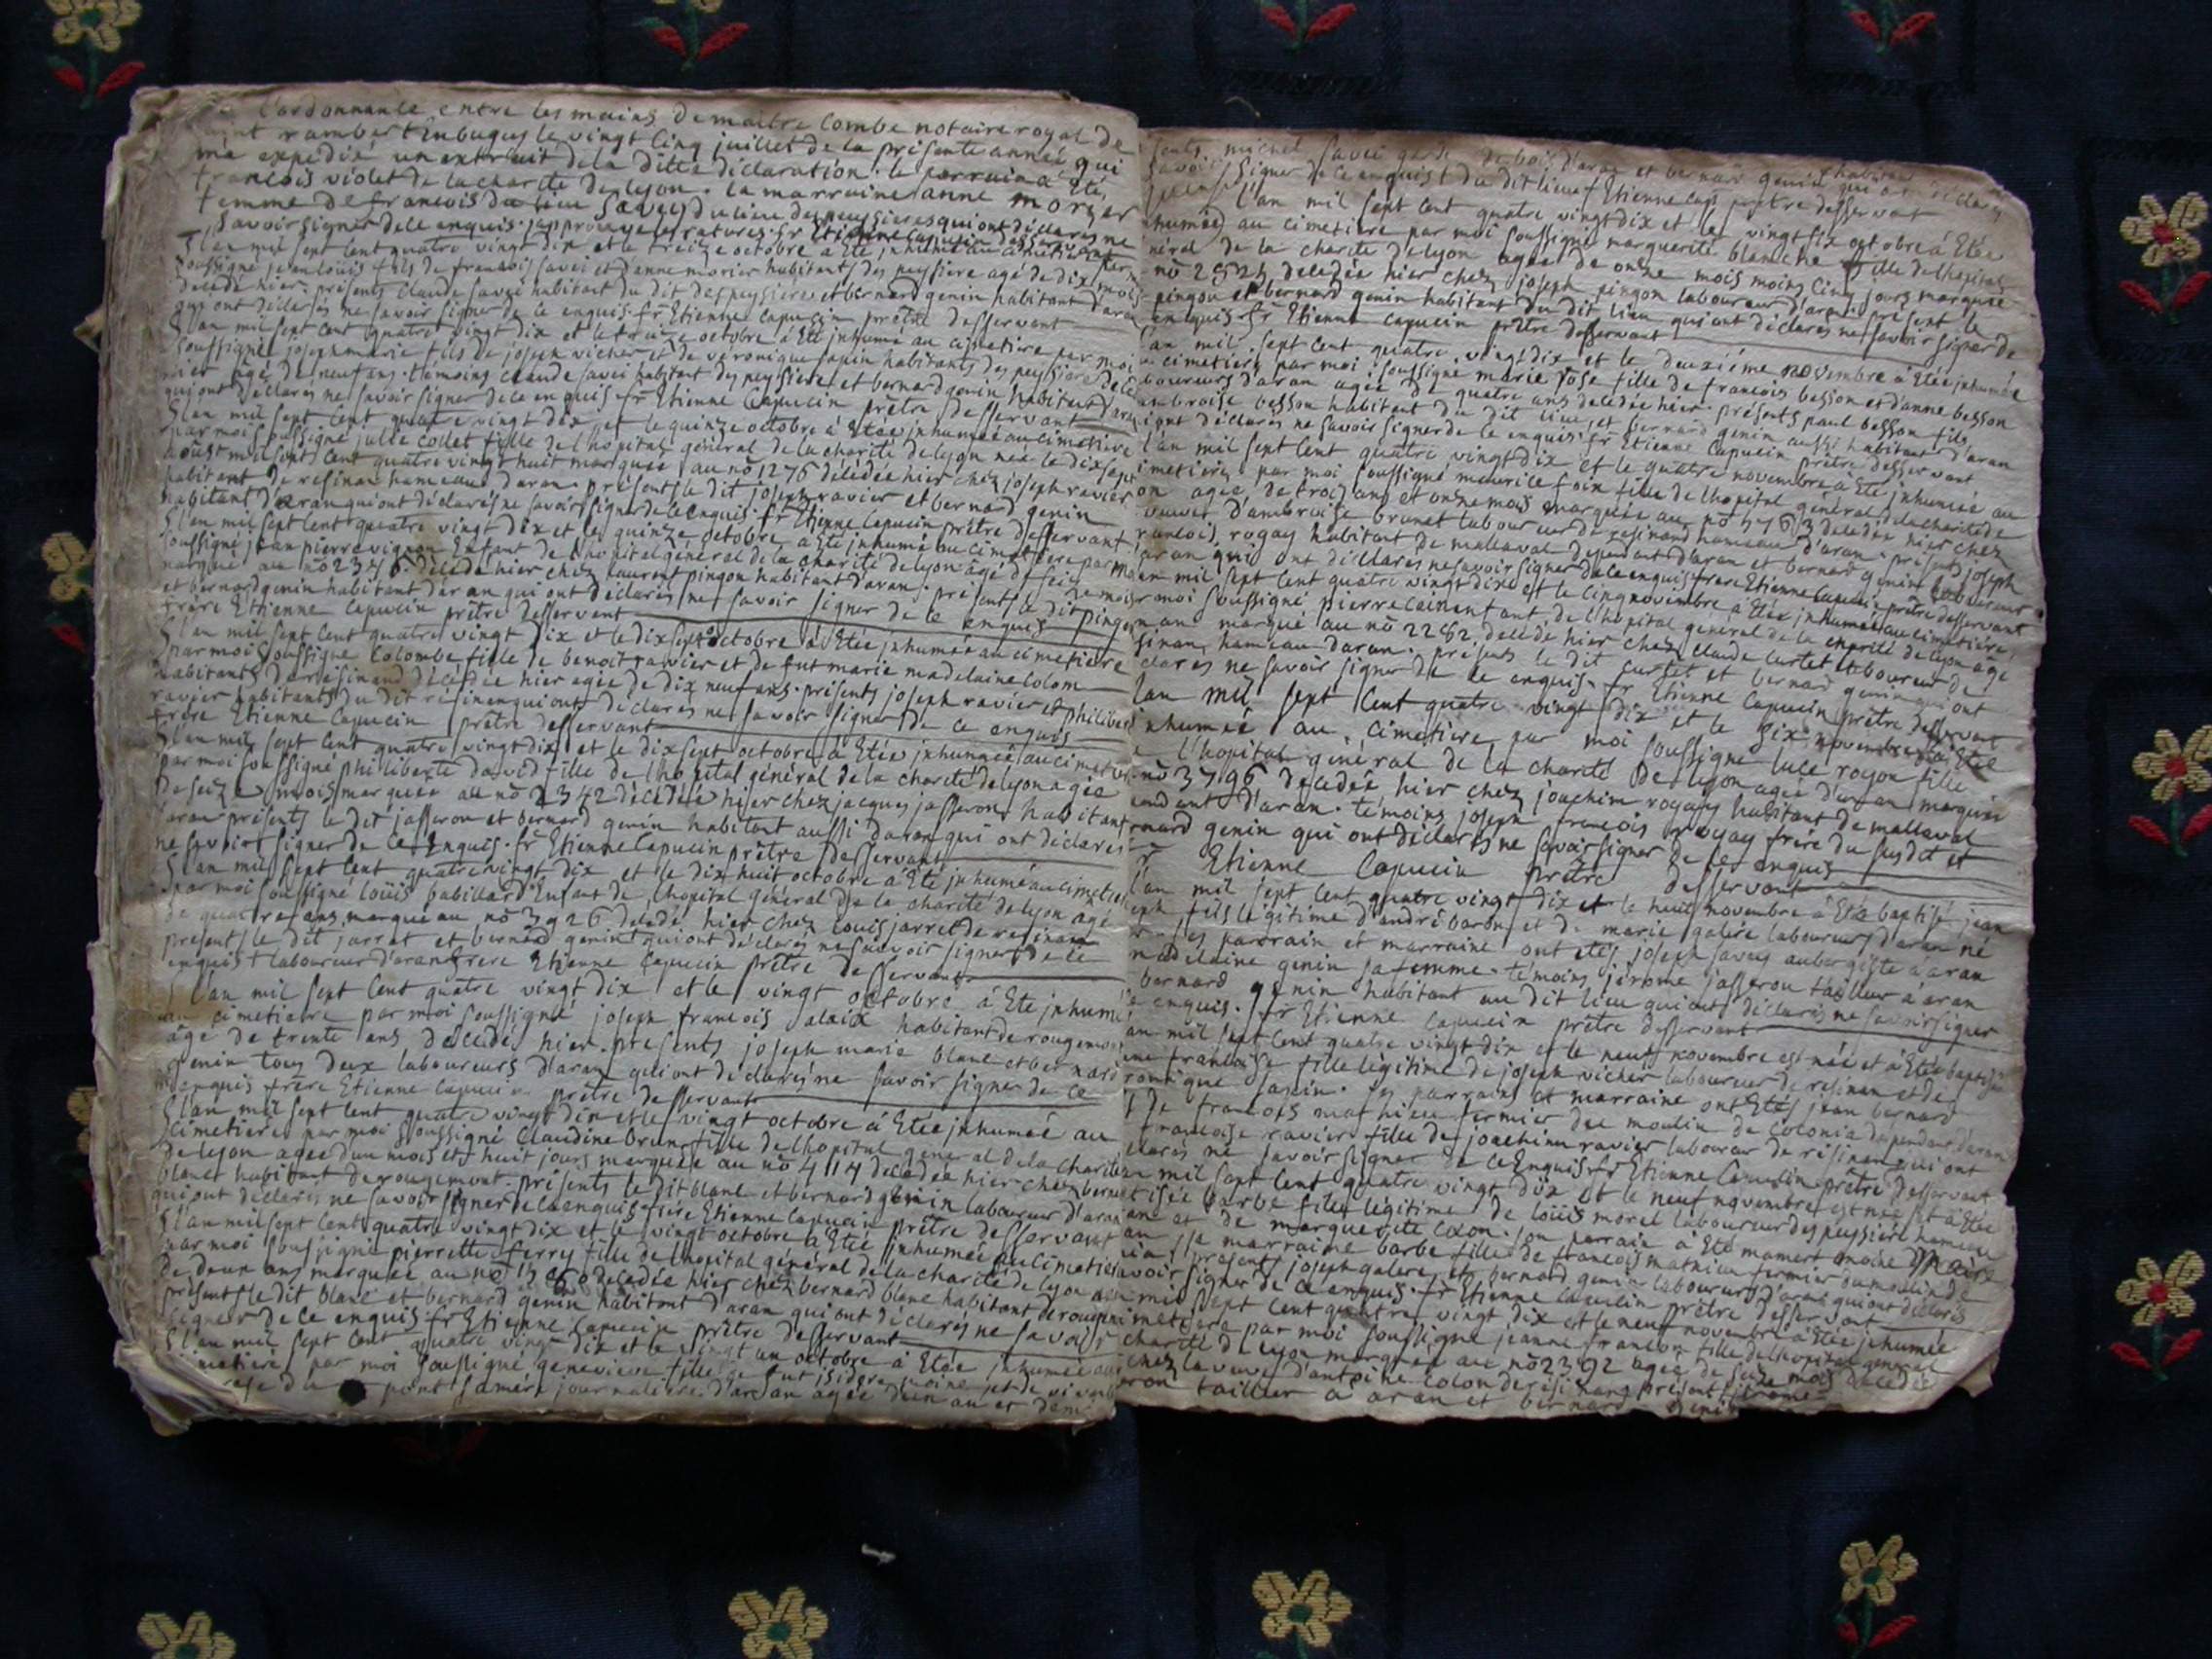 l'ordonnance entre les mains de maitre combe notaire royal de
saint rambert Enbugey le vingt cinq juillet de la présente année qui
m'a expedié un extrait de la ditte déclaration. le parrain a Eté
francois violet de la charité de lyon. la marraine anne morier
femme de francois savey du lieu des peyssieres qui ont déclarés ne
savoir signer de ce enquis. japprouve les ratures. fr Etienne capucin desservant
l'an mil sept cent quatre vingt dix et le treize octobre à Eté jnhumé au cimetiere par moi
soussigné jean louis fils de francois savei et d'anne morier habitants des peyssiere agé de dix mois
décédé hier. présents claude savei habitant du dit des peyssieres et bernard genin habitant d'aran
qui ont déclarés ne savoir signer de ce enquis. fr Etienne capucin prêtre desservant
l'an mil sept cent quatre vingt dix et le treize octobre à Eté jnhumé au cimetiere par moi
soussigné joseph marie fils de joseph vicher et de véronique sapin habitants des peyssiere décédé
hier agé de neuf ans. temoins claude savei habitant des peyssiere et bernard genin habitant d'aran
qui ont déclarés ne savoir signer de ce enquis fr Etienne capucin prêtre desservant
l'an mil sept cent quatre vingt dix et le quinze octobre à Etée jnhumée au cimetiere
par moi soussigné julie collet fille de l'hopital général de la charité de lyon née le dix sept
aoust mil sept cent quatre vingt huit marquée au nō 1276 décédée hier chez joseph ravier
habitant de resinan hameau d'aran. présents le dit joseph ravier et bernard genin
habitant d'aran qui ont déclarés ne savoir signer de ce enquis. fr Etienne capucin prêtre desservant
l'an mil sept cent quatre vingt dix et le quinze octobre à Eté jnhumé au cimetiere par moi
soussigné jean pierre vignon Enfant de l'hopital général de la charité de lyon âgé de seize mois
marqué au nō 2376. décédé hier chez laurent pingon habitant d'aran. présents le dit pingon
et bernard genin habitant d'aran qui ont déclarés ne savoir signer de ce enquis
frere Etienne capucin prêtre desservant
l'an mil sept cent quatre vingt dix et le dix sept octobre à Etée jnhumée au cimetiere
par moi soussigné colombe fille de benoit ravier et de fut marie madelaine colom
habitants de résinand décédée hier agée de dix neuf ans. présents joseph ravier et philibert
ravier habitants du dit résinen qui ont déclarés ne savoir signer de ce enquis
frere Etienne capucin prêtre desservant
l'an mil sept cent quatre vingt dix et le dix sept octobre à Etée jnhumée au cimetiere
par moi soussigné philiberte david fille de l'hopital général de la charité de lyon agée
de seize mois marquée au nō 2342 décédée hier chez jacques jasseron habitant
d'aran présents le dit jasseron et bernard genin habitant aussi d'aran qui ont déclarés
ne savoir signer de ce Enquis. fr Etienne capucin prêtre desservant
l'an mil sept cent quatre vingt dix et le dix huit octobre à Eté jnhumé au cimetiere
par moi soussigné loüis babillard Enfant de l'hopital général de la charité de lyon agé
de quatre ans marqué au nō 3926 décédé hier chez louis jarret de resinan
présents le dit jarret et bernard genin qui ont déclarés ne savoir signer de ce
enquis laboureur d'aran frere Etienne capucin prêtre desservant
l'an mil sept cent quatre vingt dix et le vingt octobre à Eté jnhumé
au cimetiere par moi soussigné joseph francois alaix habitant de rougemont
âgé de trente ans décédé hier. présents joseph marie blanc et bernard
genin tous deux laboureurs d'aran qui ont déclarés ne savoir signer de ce
enquis frere Etienne capucin prêtre desservant
l'an mil sept cent quatre vingt dix et le vingt octobre à Etée jnhumée au
cimetiere par moi soussigné claudine brun fille de l'hopital general de la charité
de lyon agée d'un mois et huit jours marquée au nō 4114 décédée hier chez bernard
blanc habitant de rougemont. présents le dit blanc et bernard genin laboureur d'aran
qui ont déclarés ne savoir signer de ce enquis frere Etienne capucin prêtre desservant
l'an mil sept cent quatre vingt dix et le vingt octobre à Eté jnhumée au cimetiere
par moi soussigné pierrette ferry fille de l'hopital général de la charité de lyon agée
de deux ans marquée au nō décédée hier chez bernard blanc habitant de rougemont
présents le dit blanc et bernard genin habitant d'aran qui ont déclarés ne savoir
signer de ce enquis fr Etienne capucin prêtre desservant
l'an mil sept cent quatre vingt dix et le vingt un octobre à Etée jnhumée au
cimetiere par moi soussigné genevieve fille de fut isidore moine et de
point sa mére journaliere d'aran agée d'un an et demi
sents michel savei garde de bois d'aran et bernard genin habitant qui ont déclarés
savoir signer de ce enquis du dit lieu fr Etienne cap prêtre desservant
l'an mil sept cent quatre vingt dix et le vingt six octobre à Etée
jnhumée au cimetiere par moi soussigné marguerite blanche fille de l'hopital
néral de la charité de lyon agée de onze mois moins cinq jours marquée
nō décédée hier chez joseph pingon laboureur d'aran. présent le
pingon et bernard genin habitant du dit lieu qui ont déclarés ne savoir signer de
enquis. fr Etienne capucin prêtre desservant
l'an mil sept cent quatre vingt dix et le deuxiéme novembre à Etée jnhumée
au cimetiere par moi soussigné marie rose fille de francois besson et d'anne besson
laboureurs d'aran agée de quatre ans décédée hier. présents paul besson fils
ambroise besson habitant du dit lieu, et bernard genin aussi habitant d'aran
ont déclarés ne savoir signer de ce enquis. fr Etienne capucin prêtre desservant
l'an mil sept cent quatre vingt dix et le quatre novembre à Eté jnhumée au
cimetiere par moi soussigné maurice foix fille de l'hopital général de la charité de
on agée de trois ans et onze mois marquée au nō décédée hier chez
veuve d'ambroise brunet laboureur de resinand hameau d'aran. présent joseph
rancois rogay habitant de mallaval dependant d'aran et bernard genin laboureur
d'aran qui ont déclarés ne savoir signer de ce enquis frere Etienne capucin prêtre desservant
l'an mil sept cent quatre vingt dix et le cinq novembre à Etée jnhumée au cimetiere
par moi soussigné pierre enfant de l'hopital général de la charité de lyon agé
un an marqué au nō 2252 décédé hier chez claude curtet laboureur de
sinan hameau d'aran. présents le dit curtet et bernard genin qui ont
clarés ne savoir signer de ce enquis. fr Etienne capucin prêtre desservant
l'an mil sept cent quatre vingt dix et le six novembre à Etée
jnhumée au cimetiere par moi soussigné luce royon fille
de l'hopital général de la charité de lyon agée d'un an marquée
nō 3796 décédée hier chez joachim rogay habitant de mallaval
endant d'aran. témoins joseph francois rogay frére du susdit et
rnard genin qui ont déclarés ne savoir signer de ce enquis
fr Etienne capucin prêtre desservant
l'an mil sept cent quatre vingt dix et le huit novembre à Eté baptisé jean
eph fils légitime d'andré baron et de marie galére laboureurs d'aran né
parrain et marraine ont etés joseph savey aubergiste à aran
madelaine genin sa femme. témoins jérome jasseron tailleur à aran
bernard genin habitant au dit lieu qui ont déclarés ne savoir signer
ce enquis. fr Etienne capucin prêtre desservant
l'an mil sept cent quatre vingt dix et le neuf novembre est née et à Etée baptisée
francoise fille légitime de joseph vicher laboureur de resinan et de
ronique sapin. ses parrains et marraine ont Etés jean bernard
de francois mathieu fermier du moulin de colonia dependant d'aran
francoise ravier fille de joachim ravier laboureur de résinan qui ont
clarés ne savoir signer de ce Enquis. fr Etienne capucin prêtre desservant
l'an mil sept cent quatre vingt dix et le neuf novembre est née et à Etée
tisée barbe fille légitime de loüis morel laboureur des peyssiere hameau
an et de marguerite colon. son parrain à Eté mamert moine Maire
an sa marraine barbe fille de francois mathieu fermier du moulin de
nia, présents joseph galere, et bernard genin laboureurs d'aran qui ont déclarés
savoir signer de ce enquis. fr Etienne capucin prêtre desservant
l'an mil sept cent quatre vingt dix et le neuf novembre à Etée jnhumée
cimetiere par moi soussigné jeanne francon fille de l'hopital general
charité de lyon marquée au nō 2392 agée de seize mois décédée
chez la veuve d'antoine colon de résinand présent jérome
ron tailleur à aran et bernard genin